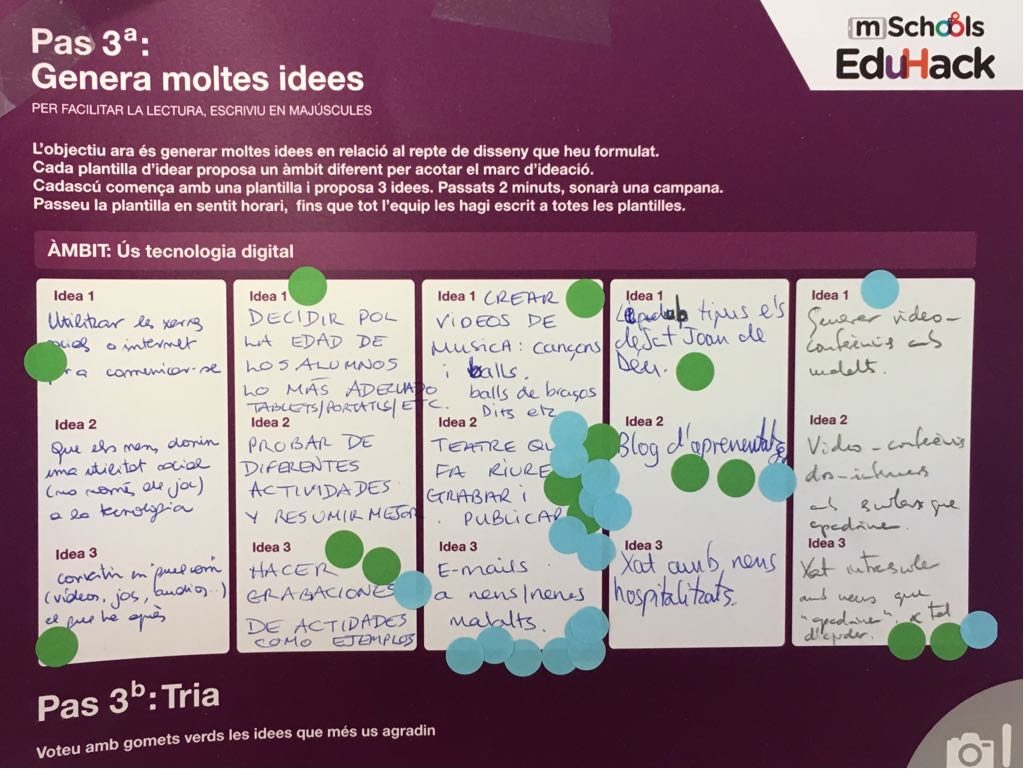 Pas 3ª:
Genera moltes idees
PER FACILITAR LA LECTURA, ESCRIVIU EN MAJÚSCULES
mSchools
EduHack
L'objectiu ara és generar moltes idees en relació al repte de disseny que heu formulat.
Cada plantilla d'idear proposa un àmbit diferent per acotar el marc d'ideació.
Cadascú comença amb una plantilla i proposa 3 idees. Passats 2 minuts, sonarà una campana.
Passeu la plantilla en sentit horari, fins que tot l'equip les hagi escrit a totes les plantilles.
ÀMBIT: Ús tecnologia digital
Idea 1
Utilitzar les xarxes
o internet
a comunicar-se
Idea 2
Que els nens donin
una utilitat social
(no només de joc)
a la tecnologia
Idea 3
convertir en
(vídeos, jocs, audios...)
el que he après
Idea 1
DECIDIR POL
LA EDAD DE
LOS ALUMNOS
LO MÁS ADECUADO
TABLETS/PORTATILS/ETC.
Idea 2
PROBAR DE
DIFERENTES
ACTIVIDADES
Y RESUMIR MEJOR
Idea 3
HACER
GRABACIONES
DE ACTIDADES
COMO EJEMPLOS
Idea 1 CREAR
VIDEOS DE
MUSICA: cançons
i balls.
balls de braços
Dits etz
Idea 2
TEATRE QU
FA RIURE
GRABAR I
PUBLICAR
Idea 3
E-mails
a nens/nenes
malalts.
Idea 1
tipus els
de Sct Joan de
Deu.
Idea 2
Blog d'aprenentatge
Idea 3
Xat amb, nens
hospitalitzats.
Idea 1
Generar video-
conferències amb
malalt.
Idea 2
Video-conferències
amb escolars que
apadrinen.
Idea 3
Xat intraescolar
amb nens que
"apadrinen". x tal
d'ajudar.
Pas 3ᵇ: Tria
Voteu amb gomets verds les idees que més us agradin